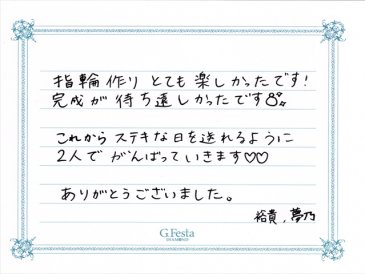 指輪作り とても楽しかったです!
完成が待ち遠しかったです
これから ステキな日を送れるように
2人で がんばっていきます♡♡
ありがとうございました。
裕貴、夢乃
G.Festa
DIAMOND